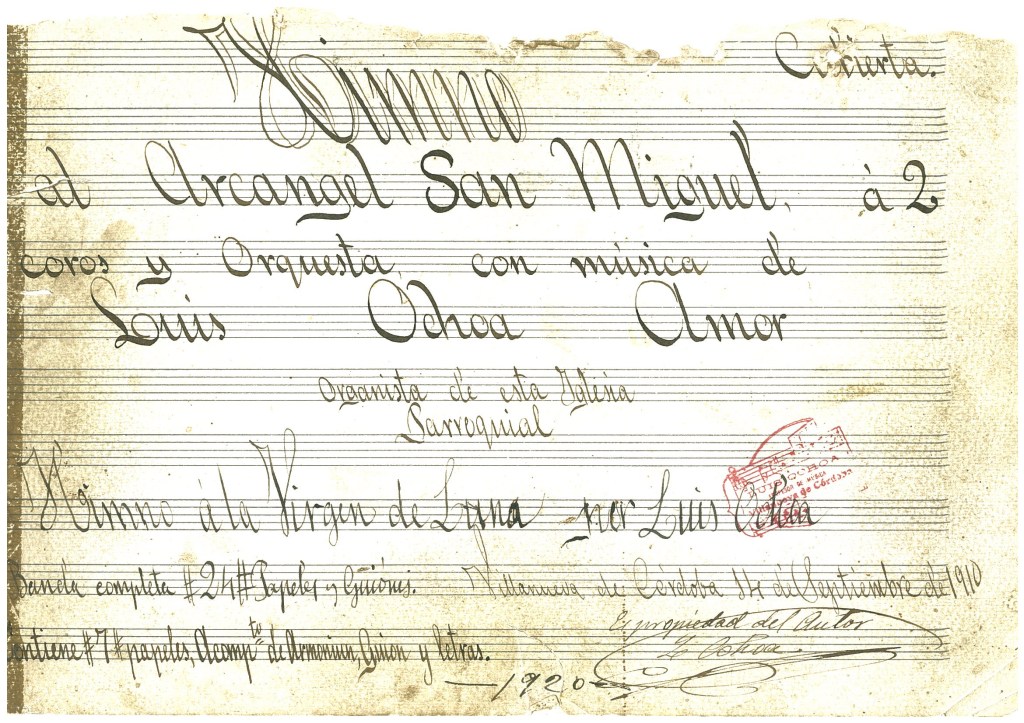 Cubierta.
Himno
al Arcangel San Miguel, á 2
coros y Orquesta, con música de
Luis Ochoa Amor
Organista de esta Iglesia
Parroquial
LUIS OCHOA
Villanueva de Córdoba
Himno á la Virgen de Luna por Luis Ochoa
Banda completa #24# Papeles y Guiónes. Villanueva de Córdoba 14 de Septiembre de 1910
Contiene #7# papeles, Acompto de Armonium, Guion y letras.
Es propiedad del Autor
L Ochoa.
—1920—